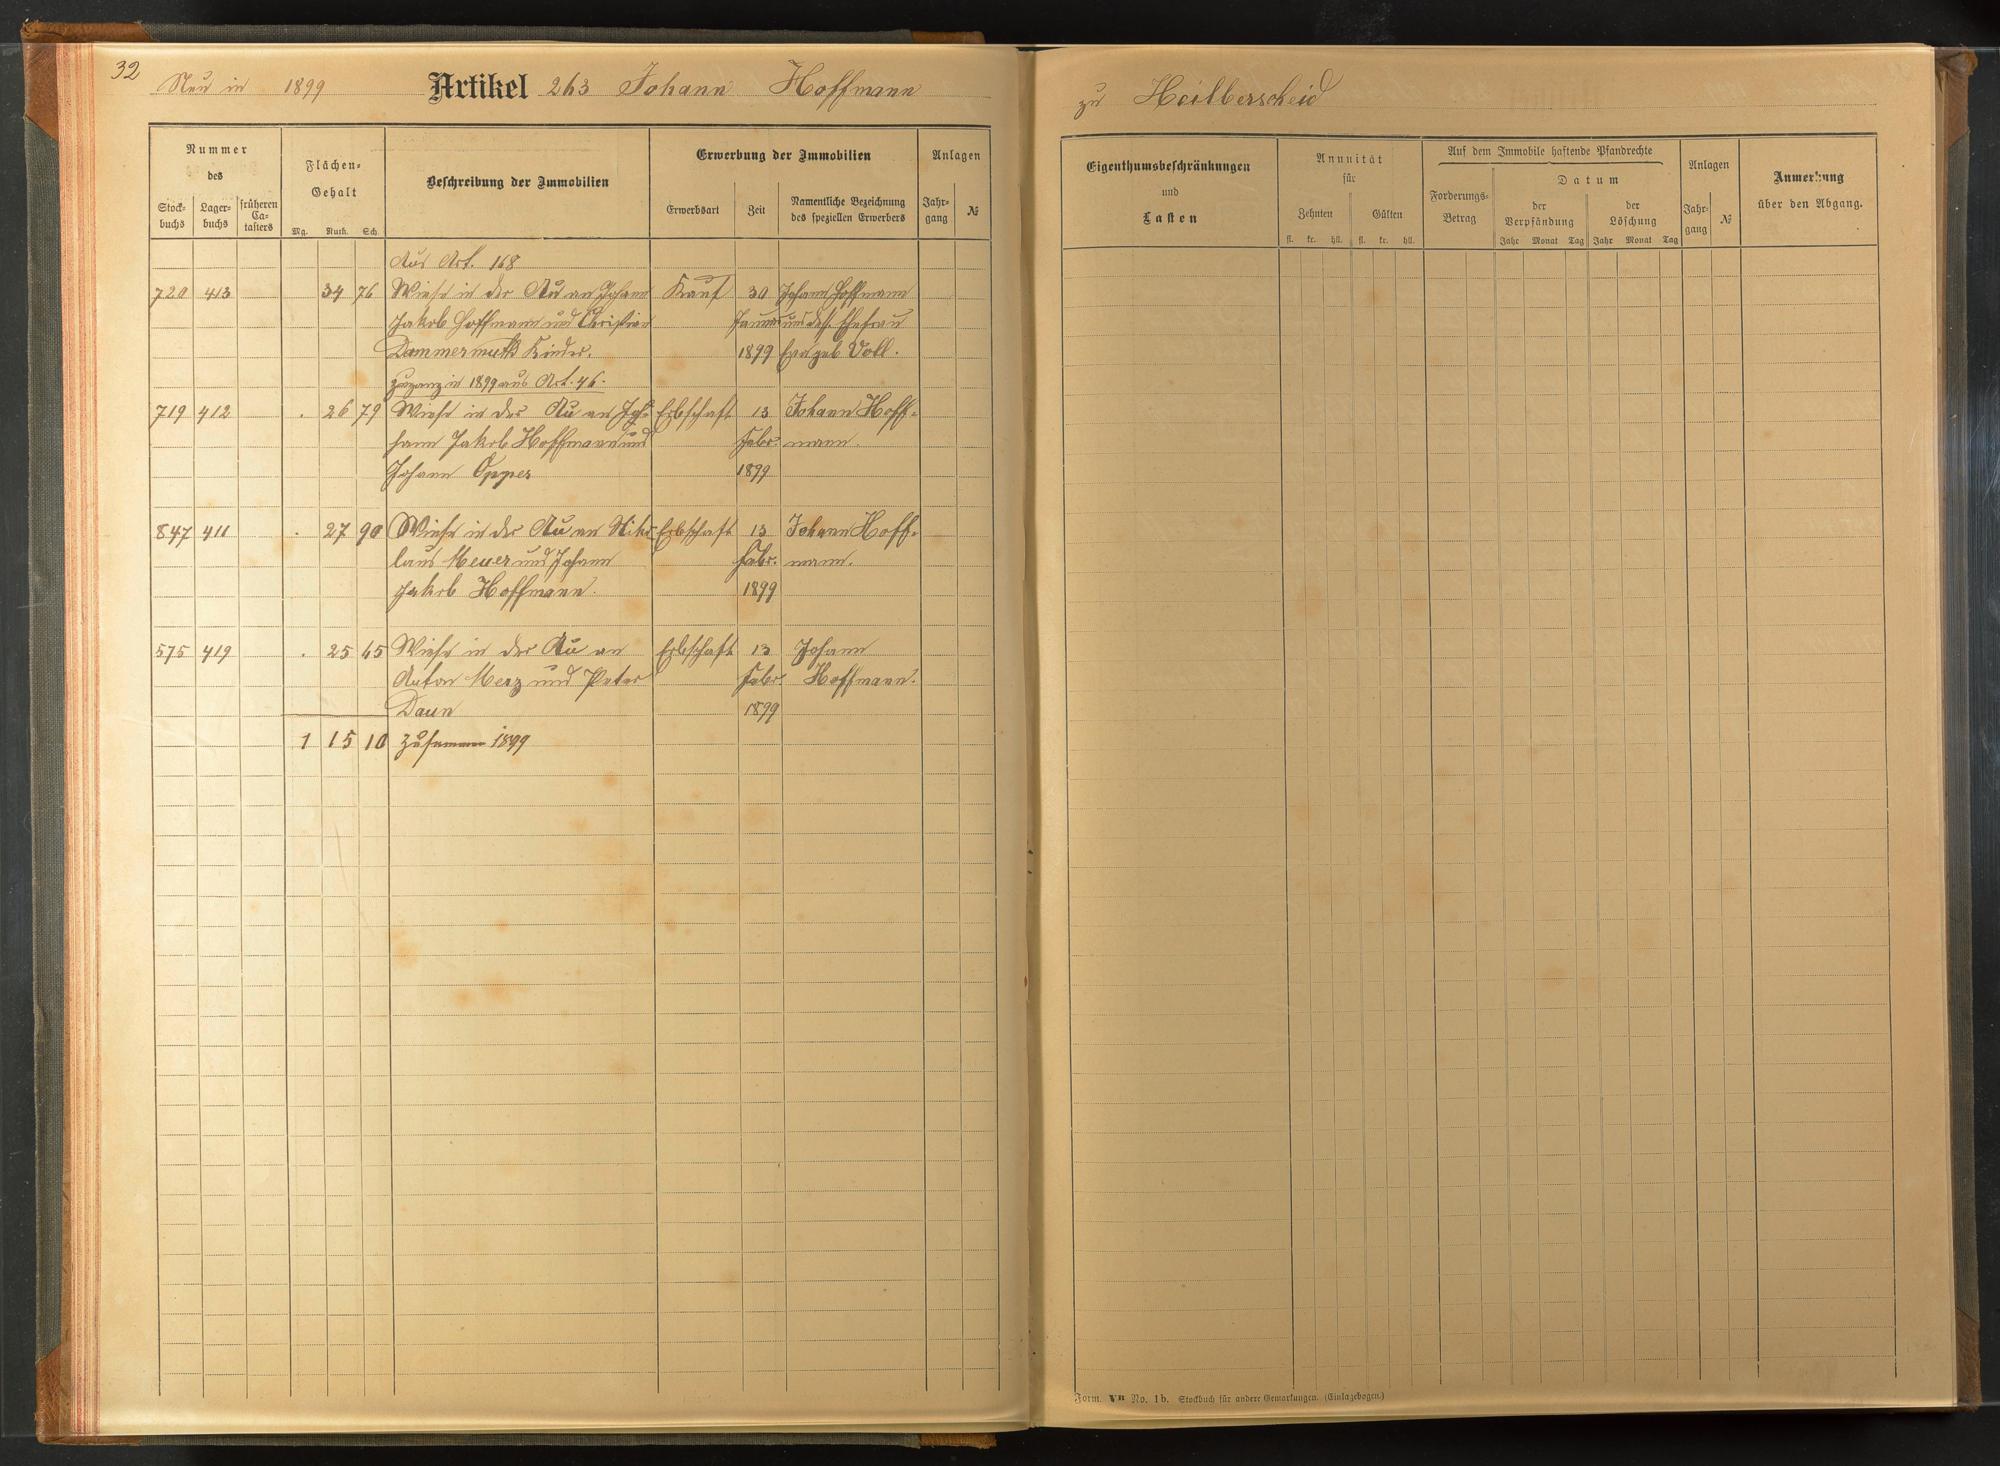 32
Neu in 1899 Artikel 263 Johann Hoffmann
Nummer
des
Stock-
buchs
Lager-
buchs
früheren
Ca-
tasters
Flächen-
Gehalt
Mg. Ruth. Sch.
Beschreibung der Immobilien
Erwerbung der Immobilien
Erwerbsart
Zeit
Namentliche Bezeichnung
des speziellen Erwerbers
Anlagen
Jahr-
gang
№
Aus Art. 168
720 413 34 76 Wiese in der Au an Johann Kauf 30 Johann Hoffmann
Jakob Hoffmann und Christian Januar und dess. Ehefrau
Dammermuth Kinder. 1899 Eva geb. Voll.
Zugang in 1899 aus Art. 46.
719 412 . 26 79 Wiese in der Au an Jo- Erbschaft 13 Johann Hoff-
hann Jakob Hoffmann und Febr. mann.
Johann Opper 1899
847 411 . 27 90 Wiese in der Au an Niko- Erbschaft 13 Johann Hoff-
laus Meuer und Johann Febr. mann.
Jakob Hoffmann. 1899
575 419 . 25 65 Wiese in der Au an Erbschaft 13 Johann
Anton Merz und Peter Febr. Hoffmann.
Daun 1899
1 15 10 Zusammen 1899
zu Heilberscheid
Eigenthumsbeschränkungen
und
Lasten
Annuität
für
Zehnten
fl. kr. hll.
Gülten
fl. kr. hll.
Auf dem Immobile haftende Pfandrechte
Forderungs-
Betrag
Datum
der
Verpfändung
Jahr Monat Tag
der
Löschung
Jahr Monat Tag
Anlagen
Jahr-
gang
№
Anmerkung
über den Abgang.
Form. No. 1b. Stockbuch für andere Gemarkungen. (Einlagebogen.)